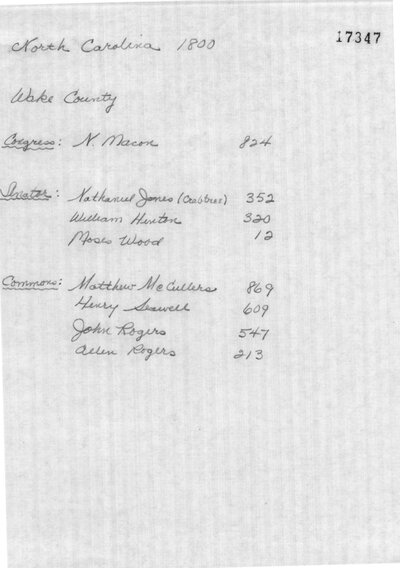 North Carolina 1800
17347
Wake County
Congress: N. Macon 824
Senator: Nathaniel Jones (Crabtree) 352
William Hinton 320
Moses Wood 12
Commons: Matthew McCullers 869
Henry Seawell 609
John Rogers 547
Allen Rogers 213